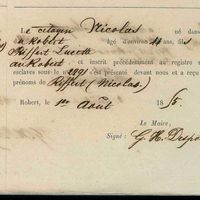 Le citoyen Nicolas né dans
au Robert âgé d'environ 14 ans, fils
Lucette
au Robert et inscrit précédemment au registre
esclaves sous le n° 2891 s'est présenté devant nous et a reçu
prénoms de Riffert (Nicolas.)
Robert, le 1er Août 18
Le Maire,
Signé : G. H. Despo